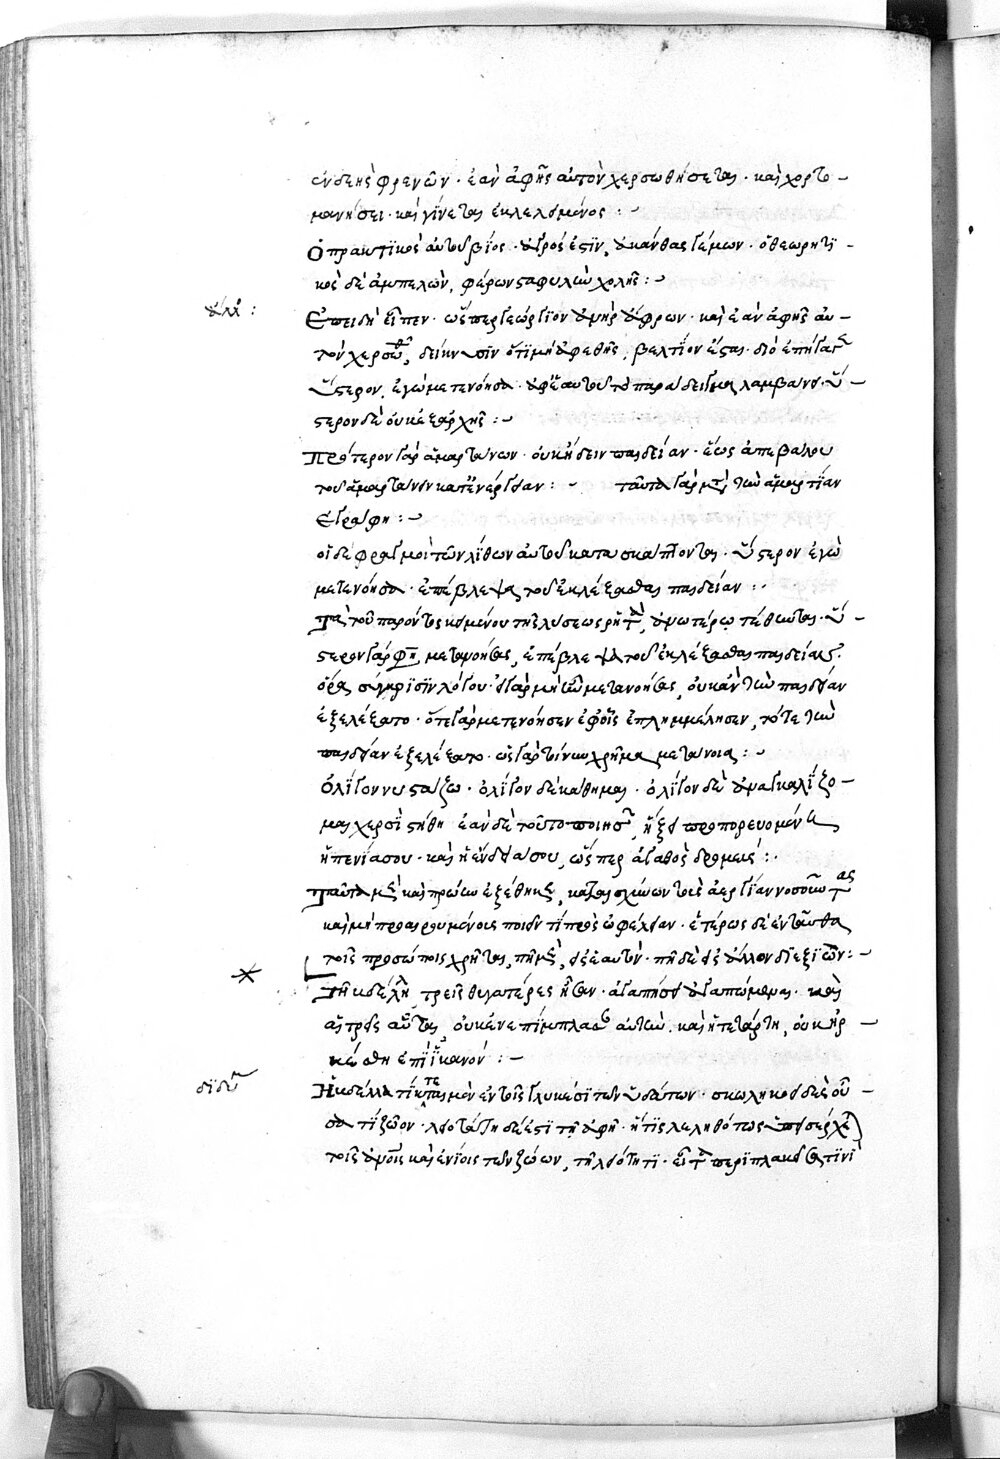 ἐνδεὴς φρενῶν · ἐὰν ἀφῇς αὐτὸν χερσωθήσεται · καὶ χορτο
μανήσει · καὶ γίνεται ἐκλελυμένος :
Ὁ πρακτικὸς αὐτοῦ βίος · ἀγρός ἐστιν, ἀκάνθας γέμων · ὁ θεωρητι
κὸς δὲ ἀμπελὼν, φέρων σταφυλὴν χολῆς :
ἄλλ :
Ἐπειδὴ εἶπεν · ὥσπερ γεώργιον ἀνὴρ ἄφρων · καὶ ἐὰν ἀφῇς αὐ
τὸν χερσωθ, δείκνυσιν ὅτι μὴ ἀφεθεὶς, βελτίον ἔσται · διὸ ἐπήγαγ
ὕστερον, ἐγὼ μετενόησα · ἀφ' ἑαυτοῦ τὸ παράδειγμα λαμβάνει · ὕ
στερον δὲ οὐκ ἐξαρχῆς :
Πρότερον γὰρ ἁμαρτάνων · οὐκ ᾔδειν παιδείαν · ἕως ἀπεβάλου
τοῦ ἁμαρτάνειν κατ' ἐνέργειαν : ταῦτα γὰρ μετὰ τὴν ἁμαρτίαν
ἐγράφη :
οἱ δὲ φραγμοὶ τῶν λίθων αὐτοῦ κατασκάπτονται · ὕστερον ἐγὼ
μετενόησα · ἐπέβλεψα τοῦ ἐκλέξασθαι παιδείαν :
Τὰ τοῦ παρόντος κειμένου τῆς λύσεως ῥητὰ, ἀνωτέρω τέθεινται · ὕ
στερον γάρ φη, μετανοήσας, ἐπέβλεψα τοῦ ἐκλέξασθαι παιδείας ·
ὅρα σύγκρισιν λόγου · εἰ γὰρ μὴ ἦν μετανοήσας, οὐκ ἂν τὴν παιδείαν
ἐξελέξατο · ὅτε γὰρ μετενόησεν ἐφ' οἷς ἐπλημμέλησεν, τότε τὴν
παιδείαν ἐξελέξατο · ὥστε γὰρ τίνων χρῆμα μετάνοια :
Ὀλίγον νυστάζω · ὀλίγον δὲ κάθημαι · ὀλίγον δὲ ἀναγκαλίζο
μαι χερσὶ στήθη ἐὰν δὲ τοῦτο ποιῇς, ἥξει προπορευομένη
ἡ πενία σου · καὶ ἡ ἔνδεια σου, ὥσπερ ἀγαθὸς δρομεύς :
Ταῦτα μὲν καὶ πρώην ἐξέθηκε, καταισχύνων τοὺς ἀεργίαν νοσοῦντας
καὶ μὴ προαιρουμένους ποιεῖν τι πρὸς ὠφέλειαν · ἑτέρως δὲ ἐνταῦθα
τοῖς προσώποις χρῆται, πῇ μὲν, εἰς ἑαυτόν · πῇ δὲ εἰς ἄλλον διεξιών :
Τῇ βδέλλῃ τρεῖς θυγατέρες ἦσαν · ἀγαπήσει ἀγαπώμεναι · καὶ
αἱ τρεῖς αὗται, οὐκ ἐνεπίμπλασαν αὐτήν · καὶ ἡ τετάρτη, οὐκ ἠρ
κέσθη ἐπῖ ἱκανόν :
διδύ
Ἡ βδέλλα τίκτεται μὲν ἐν τοῖς γλυκέσι τῶν ὑδάτων · σκωληκοειδὲς οὖ
σα τι ζῷον · λειοτάτη δέ ἐστι τῇ ἁφῇ · ἥτις λεληθότως ὑπεισέρχε
τοῖς ἀνοις καὶ ἐνίοις τῶν ζώων, τῇ λειότητι · εἶτα περιπλακεῖσά τινι